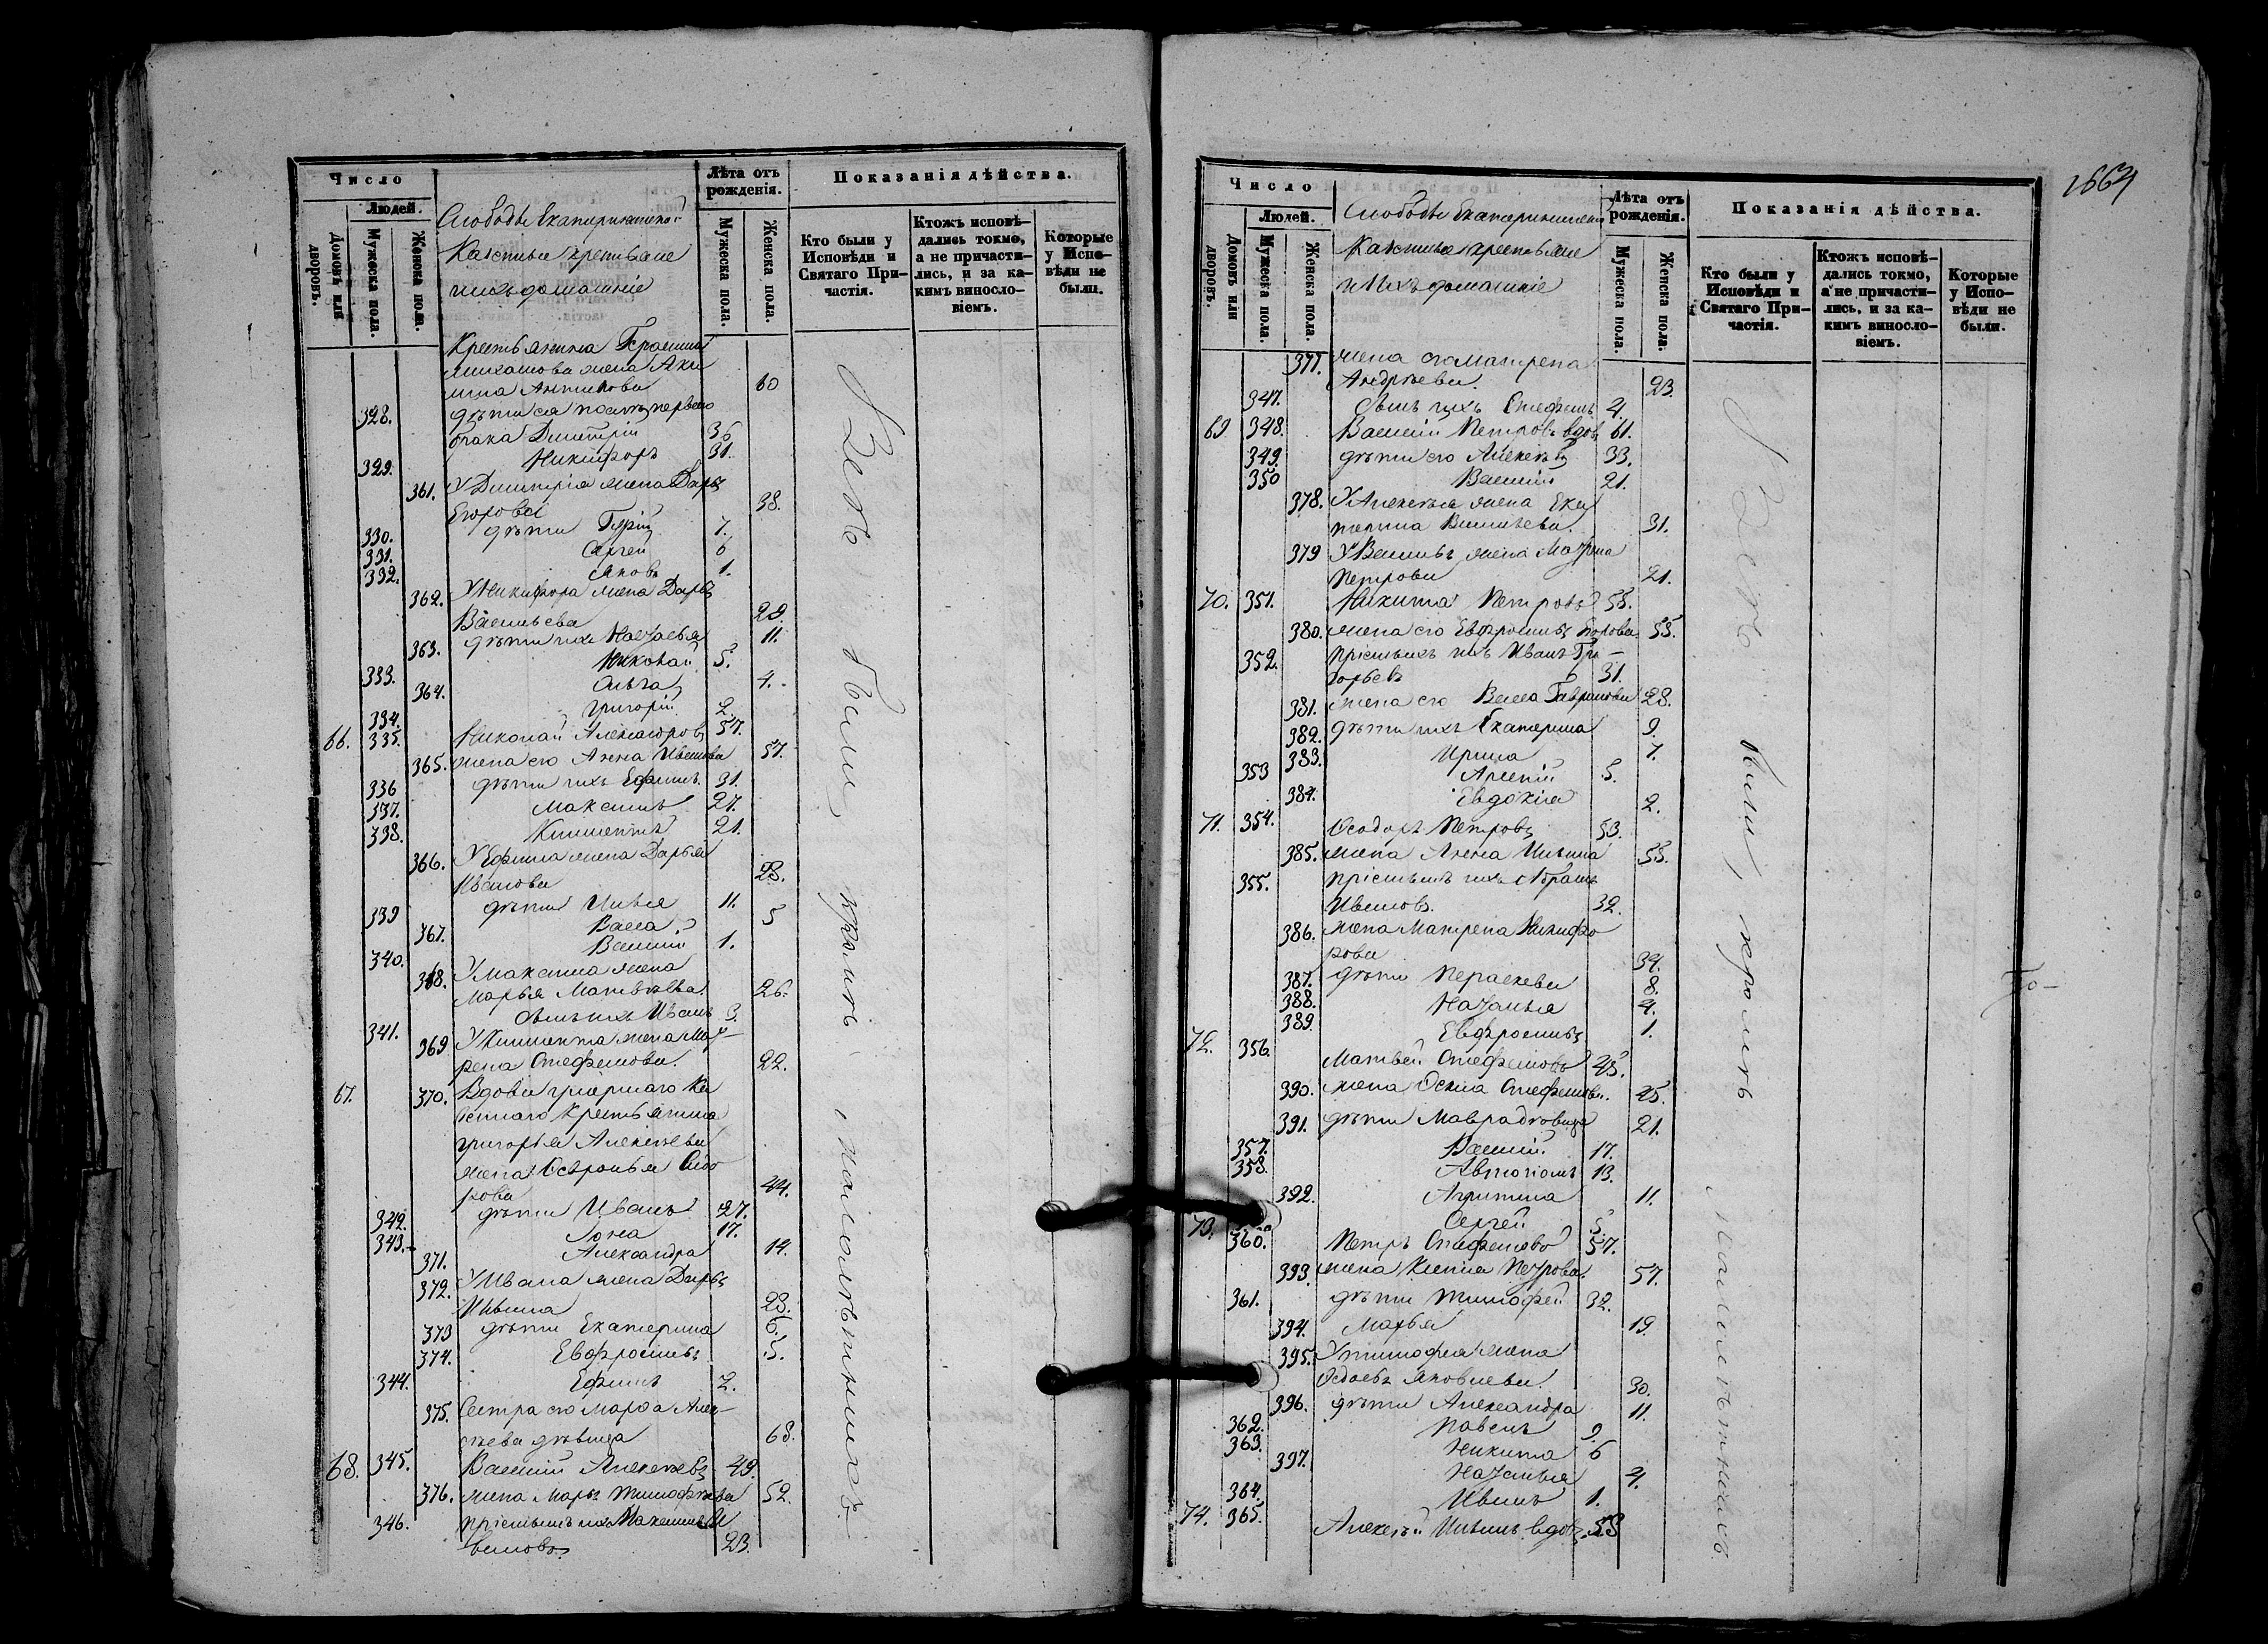 Число
Людей.
Домовъ или дворовъ.
Мужеска пола.
Женска пола.
Слободы Екатерининской
Казенные крестьяне
и ихъ домашніе
Лѣта отъ рожденія.
Мужеска пола.
Женска пола.
Показанія дѣйства.
Кто были у Исповѣди и Святаго Причастія.
Ктожъ исповѣдались токмо, а не причастились, и за какимъ винословіемъ.
Которые у Исповѣди не были.
Крестьянина
жена Аки
лина 60
328. дѣти ея первого
брака Димитрій 36
329. Никифоръ 31.
361. У Димитрія жена Дарья
Егорова 38.
330. дѣти 7.
331. Сергей 6
332. Яковъ 1.
362. У Никифора жена Дарья
Васильева 29.
363. дѣти ихъ Наталья 11.
333. Николай 5.
364. Ольга 4.
334. Григорій 2.
66. 335. Николай Александровъ 57.
365. жена его Анна Иванова 57.
336 дѣти ихъ Ефимъ 31.
337. Максимъ 27.
338. Климентъ 21.
366. У Ефима жена Дарья
Иванова 28.
339 дѣти Илья 11.
367. Васса 5
340. Василій 1.
368. У Максима жена
Марья Матвѣева 26.
341. сынъ ихъ Иванъ 3.
369 У Климента жена Мат-
рена Стефанова. 22.
67. 370. Вдова умершаго Ка
зеннаго крестьянина
Григорья Алексѣева
жена Сидо
рова 44.
342. дѣти Иванъ 27.
343. 17.
371. Александра 14.
372. У Ивана жена Дарья
Ильина 28.
373 дѣти Екатерина 6.
374. Евфросинья 5.
344. Ефимъ 2.
375. Сестра его Марфа Алек-
сѣева дѣвица 68.
68. 345. Василій Алексѣевъ 49.
376. жена Марья Тимофѣева 52.
346. пріемышъ ихъ Максимъ И
вановъ 23.
Всѣ были, кромѣ малолѣтнихъ.
1664
Число
Людей.
Домовъ или дворовъ.
Мужеска пола.
Женска пола.
Слободы Екатерининской
Казенные крестьяне
и ихъ домашніе
Лѣта отъ рожденія.
Мужеска пола.
Женска пола.
Показанія дѣйства.
Кто были у Исповѣди и Святаго Причастія.
Ктожъ исповѣдались токмо, а не причастились, и за какимъ винословіемъ.
Которые у Исповѣди не были.
377. жена его Матрена
Андрѣева. 23.
347. сынъ ихъ Стефанъ 4.
69 348. Василій Петровъ вдовъ 61.
349. дѣти его Алексѣй 33.
350 Василій 21.
378. У Алексѣя жена Ека
терина Васильева. 31.
379 У Василья жена Матрена
Петрова 21.
70. 351. Никита Петровъ 58.
380. жена его Евфросинья 55.
352. пріемышъ ихъ Иванъ Гри-
горьевъ 31.
381. жена его Васса Гаврилова 28.
382. дѣти ихъ Екатерина 9.
383. Ирина 7.
353 Арсеній 5.
384. Евдокія 2.
71. 354. Ѳеодоръ Петровъ 53.
385. жена Анна Ильина 55.
355. пріемышъ ихъ Абрамъ
Ивановъ. 32.
386. жена Матрена Никифо
рова 34.
387. дѣти Параскева 8.
388. Наталья 4.
389. Евфросинья 1.
72. 356. Матвей Стефановъ 45.
390. жена Стефанова. 45.
391. дѣти Мавра дѣвица 21.
357. Василій 17.
358. Автономъ 13.
392. Агрипина 11.
Сергей 5.
73. 360. Петръ Стефановъ 57.
393. жена Ксенія Петрова 57.
361. дѣти Тимофей 32.
394. Марья 19.
395. У Тимофея жена
Яковлева. 30.
396. дѣти Александра 11.
362. Павелъ 9.
363. Никита 6
397. Наталья 4.
364. Иванъ 1.
74. 365. Алексѣй Ильинъ вдовъ 58
Всѣ были, кромѣ малолѣтнихъ.